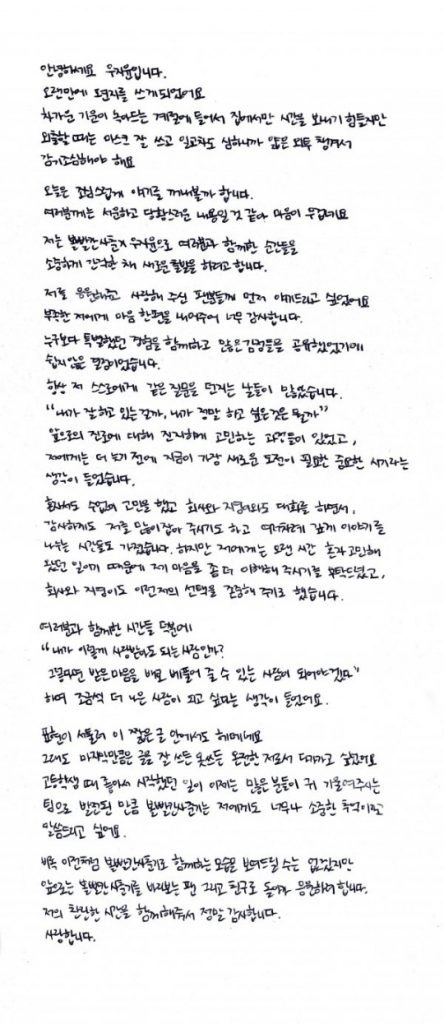 안녕하세요 우지윤입니다.
오랜만에 편지를 쓰게되었어요
차가운 기운이 찾아드는 계절에 들어서 집에서만 시간을 보내기 힘들지만
외출할 때는 마스크 잘 쓰고 일교차도 심하니까 얇은 외투 챙겨서
감기조심해야 해요
오늘은 조심스럽게 얘기를 꺼내볼까 합니다.
여러분께는 서운하고 당황스러운 내용일 것 같아 마음이 무겁네요
저는 볼빨간사춘기 우지윤으로 여러분과 함께한 순간들을
소중하게 간직한 채 새로운 출발을 하려고 합니다.
저를 응원해주고 사랑해 주신 팬분들께 먼저 얘기드리고 싶었어요
부족한 저에게 마음 한편을 내어주어 너무 감사합니다.
누구보다 특별했던 경험을 함께하고 많은 감정들을 공유했었기에
쉽지않은 결정이었습니다.
항상 저 스스로에게 같은 질문을 던지는 날들이 많았습니다.
“내가 잘하고 있는걸까, 내가 정말 하고 싶은것은 뭘까”
앞으로의 진로에 대해 진지하게 고민하는 과정들이 있었고,
저에게는 더 늦기 전에 지금이 가장 새로운 도전이 필요한 중요한 시기라는
생각이 들었습니다.
혼자서도 수없이 고민을 했고 회사와 지영이와도 대화를 하면서,
감사하게도 저를 많이 잡아 주시기도 하고 여러차례 깊게 이야기를
나누는 시간들도 가졌습니다. 하지만 저에게는 오랜 시간 혼자 고민해
왔던 일이기 때문에 저의 마음을 좀 더 이해해 주시기를 부탁드렸고,
회사와 지영이도 이런 저의 선택을 존중해 주기로 했습니다.
여러분과 함께한 시간들 덕분에
“내가 이렇게 사랑받아도 되는 사람인가?
그렇다면 받은 마음을 배로 베풀어 줄 수 있는 사람이 되어야겠다”
하며 조금씩 더 나은 사람이 되고 싶다는 생각이 들었어요.
표현이 서툴러 이 짧은 글 안에서도 헤매네요
그래도 마지막만큼은 글을 잘 쓰든 못쓰든 온전한 저로서 다가가고 싶었어요
고등학생 때 좋아서 시작했던 일이 이제는 많은 분들이 귀 기울여주시는
팀으로 발전된 만큼 볼빨간사춘기는 저에게도 너무나 소중한 추억이라고
말씀드리고 싶어요.
비록 이전처럼 볼빨간사춘기로 함께하는 모습을 보여드릴 수는 없겠지만
앞으로는 볼빨간사춘기를 바라보는 팬 그리고 친구로 돌아가 응원하려 합니다.
저의 찬란한 시간을 함께해줘서 정말 감사합니다.
사랑합니다.